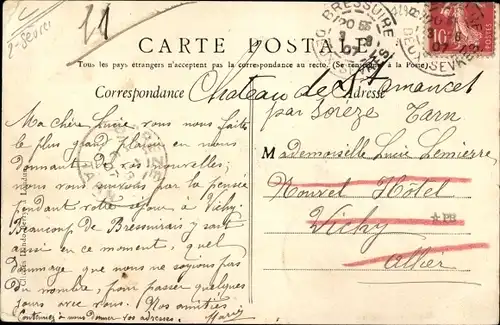 11
2-Sèvres
BRESSUIRE
DEUX-SEVRES
10
POSTES
CARTE POSTALE
Tous les pays étrangers n'acceptent pas la correspondance au recto. (Se renseigner à la Poste).
Correspondance
Adresse
Château de St Amancet
par Sorèze Tarn
Mademoiselle Lucie Lemierre
Nouvel Hôtel
Vichy
Allier
Ma chère Lucie vous nous faites
le plus grand plaisir en nous
donnant de vos nouvelles;
nous vous suivons par la pensée
pendant votre séjour à Vichy
Beaucoup de Bressuirais y sont
aussi en ce moment, quel
dommage que nous ne soyions pas
du nombre, pour passer quelques
jours avec vous. Nos amitiés
Continuez à nous donner vos adresses. Marie